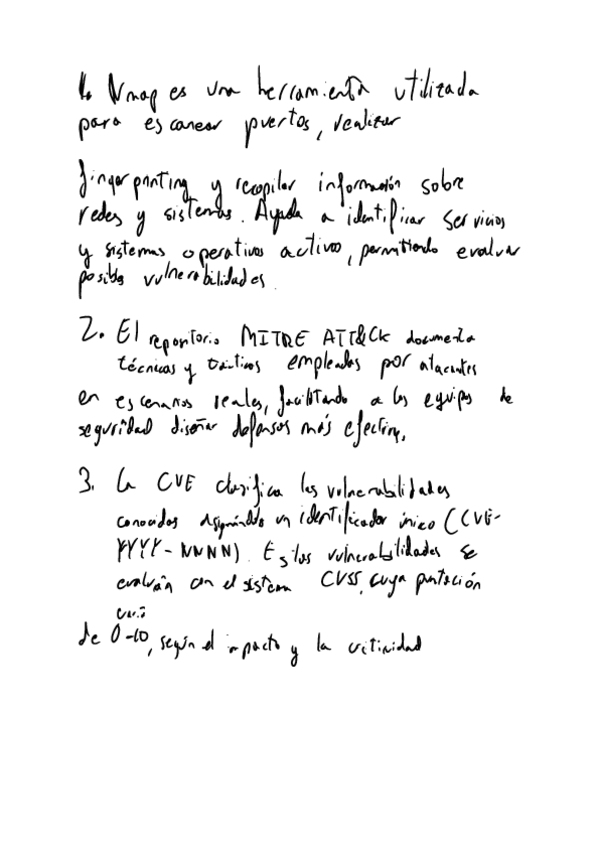 1. Nmap es una herramienta utilizada
para escanear puertos, realizar
fingerprinting y recopilar información sobre
redes y sistemas. Ayuda a identificar servicios
y sistemas operativos activos, permitiendo evaluar
posibles vulnerabilidades.
2. El repositorio MITRE ATT&CK documenta
técnicas y tácticas empleadas por atacantes
en escenarios reales, facilitando a los equipos de
seguridad diseñar defensas más efectivas.
3. La CVE clasifica las vulnerabilidades
conocidas asignándoles un identificador único (CVE-
YYYY-NNNN). Estas vulnerabilidades se
evalúan con el sistema CVSS, cuya puntuación
varía
de 0-10, según el impacto y la criticidad